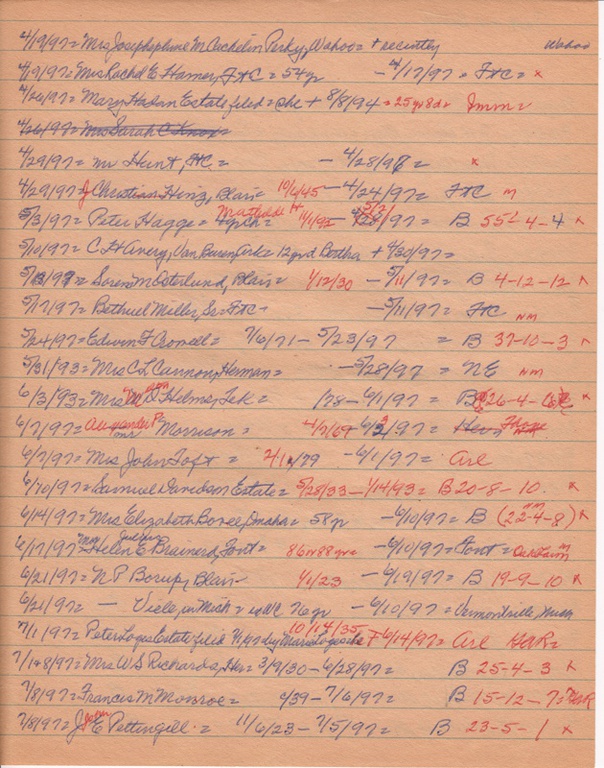 4/19/97 = Mrs Josephphine M Perky, Wahoo = + recently Wahoo
4/19/97 = Mrs Rachel E Hamer, FtC = 54yr - 4/17/97 = FtC = x
4/26/97 = Mary Estate filed = she + 8/8/94 = 25 yr 8 ds
4/26/97 = Mrs Sarah C Knox =
4/29/97 = Mr Hunt, FtC = - 4/28/97 = x
4/29/97 = J Christian Heinz, Blair = 10/6/45 - 4/24/97 = FtC m
5/3/97 = Peter Hagge = Mathilda H B 55 - 4 - 4 x
5/10/97 = C H Avery, Van Buren Ark = 12 yr d Bertha + 4/30/97 =
5/18/97 = Soren M Osterlund, Blair = 4/12/30 - 5/11/97 = B 4-12-12 x
5/17/97 = Bethuel Miller, Sr = FtC - - 5/11/97 = FtC nm
5/24/97 = Edwin F Cronell = 7/6/71 - 5/23/97 = B 37-10-3 x
5/31/93 = Mrs C L Cannon, Herman = - 5/28/97 = NE nm
6/3/93 = Mrs M D Helms, Tek = /78 - 6/1/97 = B 26-4- x
6/7/97 = Alexander P Morrison = 4/7/69 - 6/2/97 =
6/7/97 = Mrs John Toft = 2/1/79 - 6/1/97 = Arl
6/10/97 = Samuel Davidson Estate = 5/28/33 - 1/14/93 = B 20-8-10. x
6/14/97 = Mrs Elizabeth Bovee, Omaha = 58 yr - 6/10/97 = B (22-4-8) x
6/17/97 = Helen E Brainerd, Font = 86 yr - 6/10/97 = Font = m
6/21/97 = N P Borup, Blair - 4/1/23 - 6/19/97 = B 19-9-10 x
6/21/97 = - Viele, in Mich = in WC 76 yr - 6/10/97 = Vermontville, Mich
7/1/97 = Peter Logis Estate filed 10/14/35 + 6/14/97 = Arl
7/1&8/97 = Mrs W S Richards, Her = 3/9/30 - 6/28/97 = B 25-4-3 x
7/8/97 = Francis M Monroe = 4/39 - 7/6/97 = B 15-12-7 =
7/8/97 = John E Pettingill = 11/6/23 - 7/5/97 = B 23-5-1 x